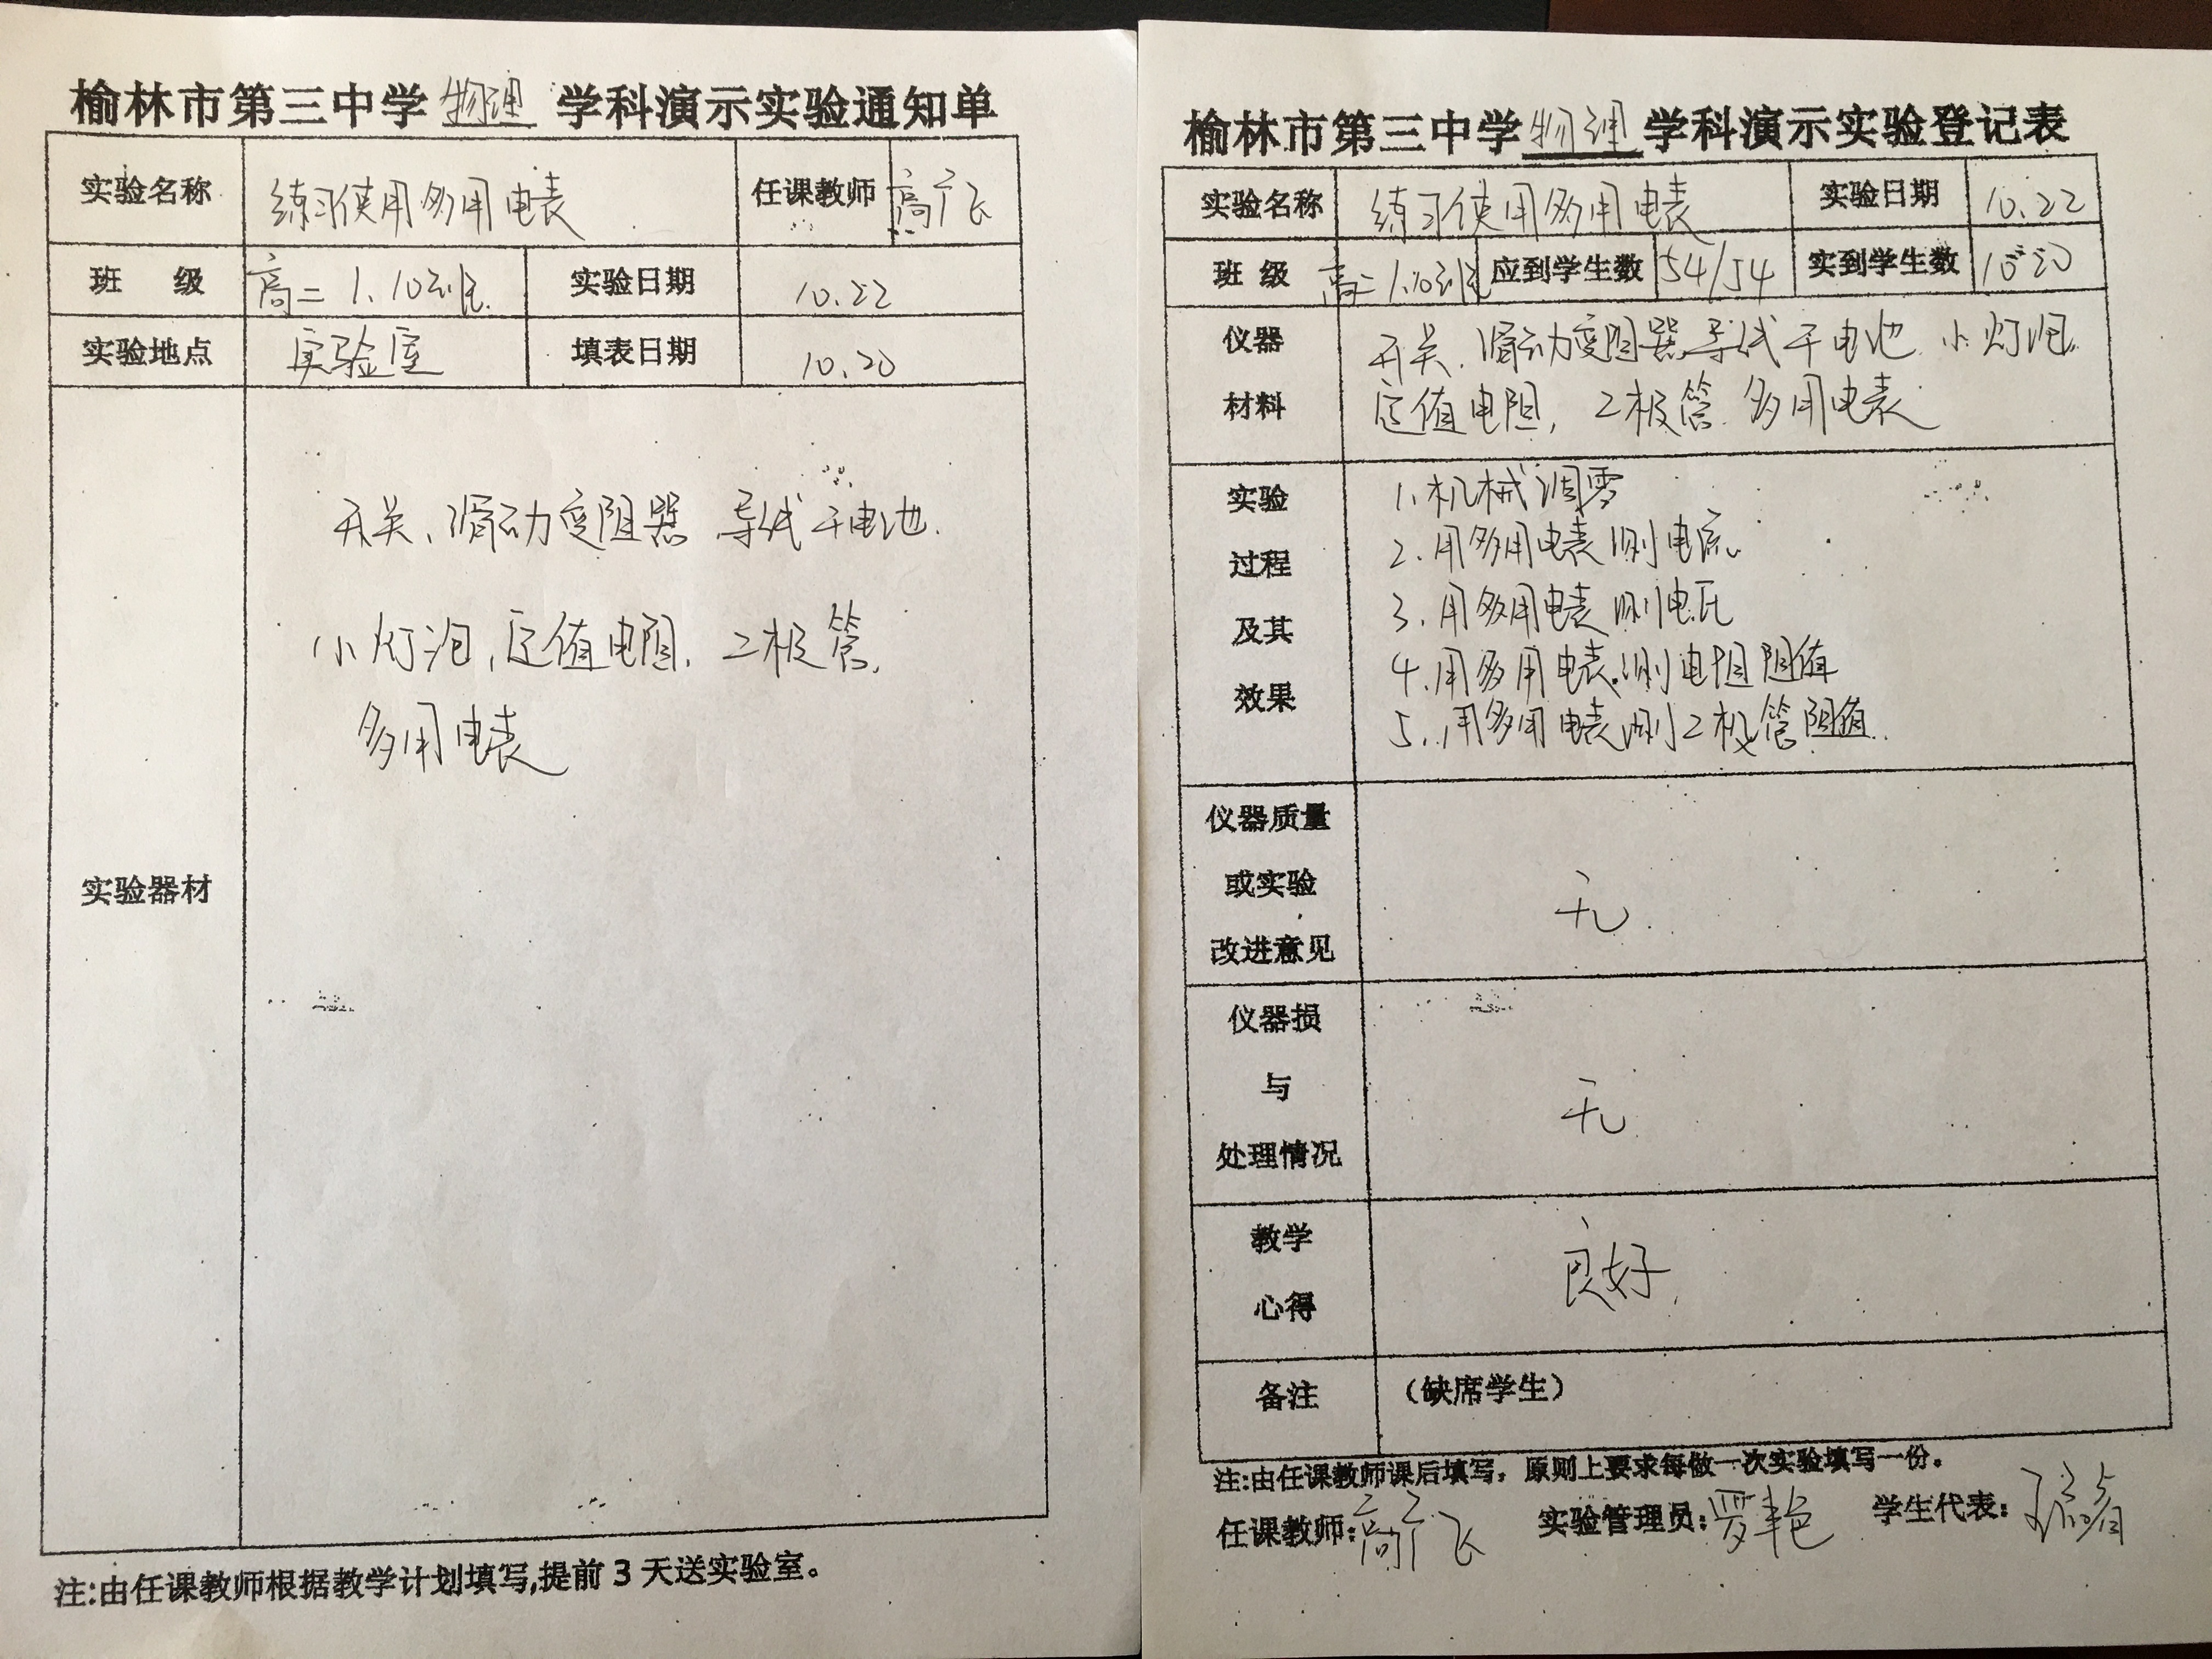 榆林市第三中学物理学科演示实验通知单
实验名称 练习使用多用电表 任课教师 高广飞
班 级 高二 1、10班 实验日期 10.22
实验地点 实验室 填表日期 10.20
实验器材
开关、滑动变阻器 导线 干电池.
小灯泡,定值电阻, 2极管,
多用电表
注:由任课教师根据教学计划填写,提前3天送实验室。
榆林市第三中学物理学科演示实验登记表
实验名称 练习使用多用电表 实验日期 10.22
班 级 高二 1.10班 应到学生数 54/54 实到学生数
仪器 开关、滑动变阻器 导线 干电池 小灯泡
材料 定值电阻, 2极管 多用电表
实验 1、机械调零
2、用多用电表测电流
过程 3、用多用电表测电压
及其 4、用多用电表测电阻阻值
效果 5、用多用电表测2极管阻值
仪器质量
或实验 无
改进意见
仪器损
与 无
处理情况
教学 良好
心得
备注 (缺席学生)
注:由任课教师课后填写,原则上要求每做一次实验填写一份。
任课教师:高广飞 实验管理员: 学生代表: